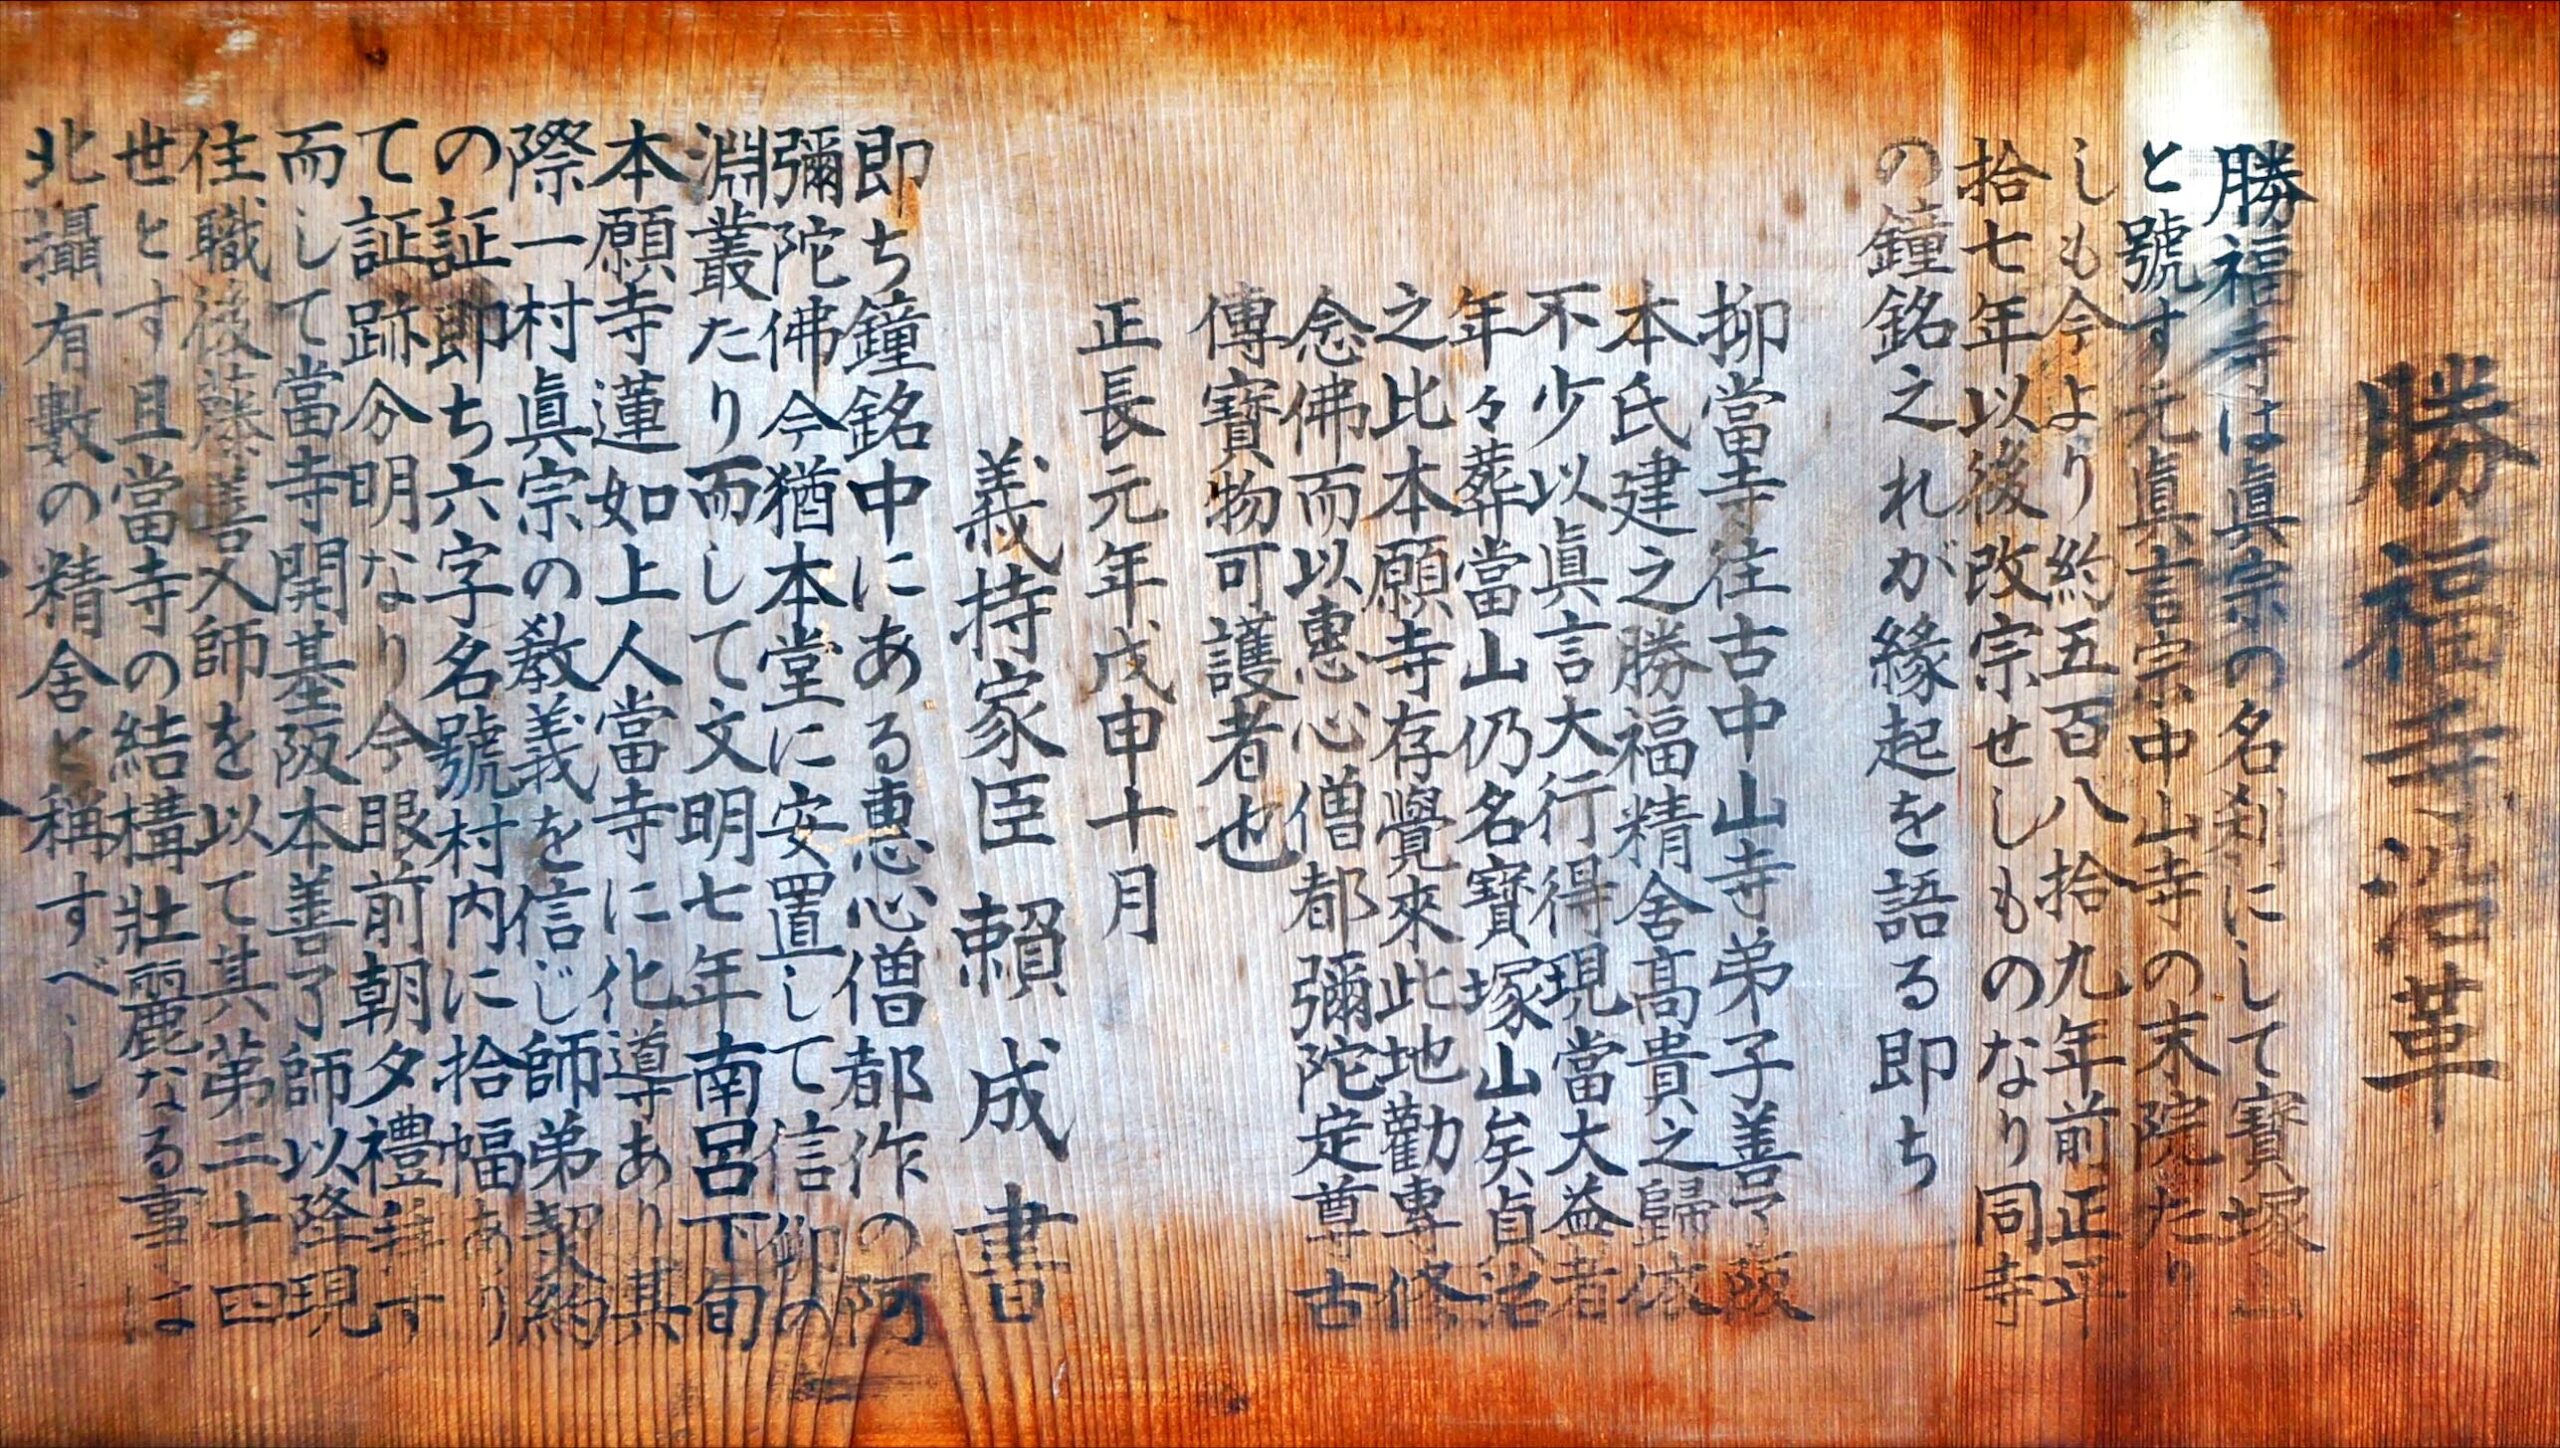 勝福寺沿革
勝福寺は眞宗の名刹にして寳塚山
と號す元眞言宗中山寺の末院たり
しも今より約五百八拾九年前正平
拾七年以後改宗せしものなり同寺
の鐘銘之れが縁起を語る即ち
抑當寺往古中山寺弟子善了阪
本氏建之勝福精舍髙貴之歸依
不少以眞言大行得現當大益者
年々葬當山仍名寳塚山矣貞治
之比本願寺存覺來此地勸專修
念佛而以惠心僧都彌陀定尊古
傳寳物可護者也
正長元年戊申十月
義持家臣 賴成 書
即ち鐘銘中にある惠心僧都作の阿
彌陀佛今猶本堂に安置して信仰の
淵叢たり而して文明七年南呂下旬
本願寺蓮如上人當寺に化導あり其
際一村眞宗の敎義を信じ師弟契約
の証即ち六字名號村内に拾幅あり
て証跡分明なり今眼前朝夕禮拜す
而して當寺開基阪本善了師以降現
住職後藤善乂師を以て其第二十四
世とす且當寺の結構壯麗なる事は
北攝有數の精舍と稱すべし